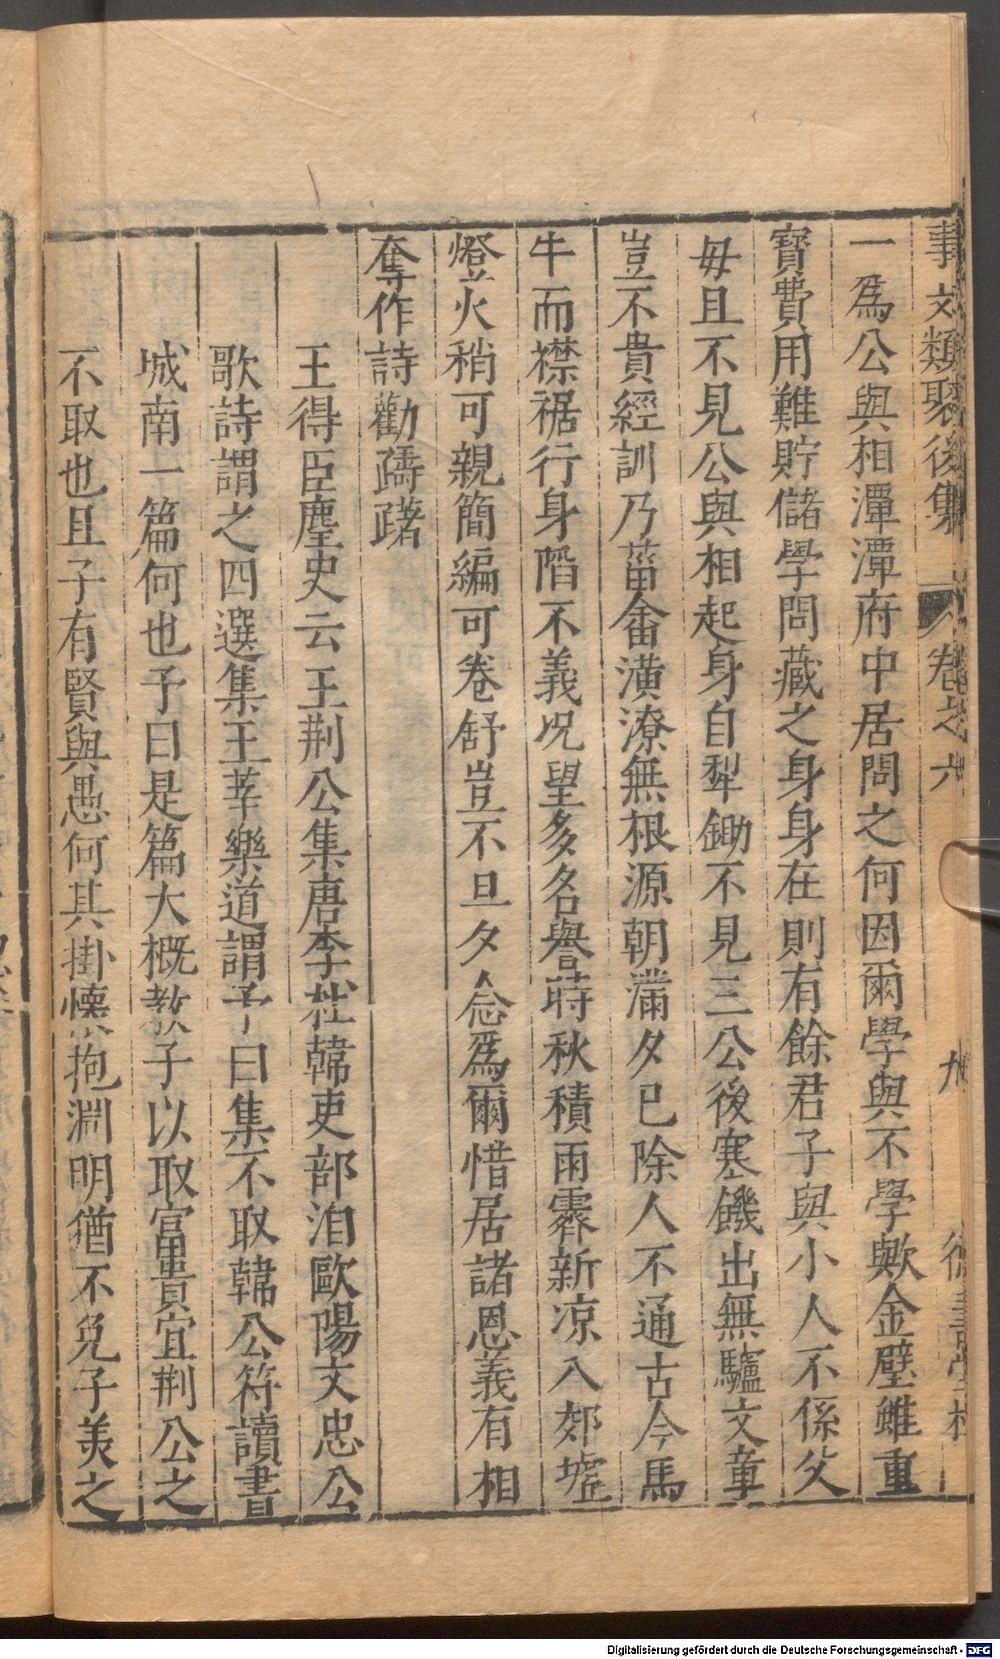 事文類聚後集 卷之六 九
一爲公與相潭潭府中居問之何因爾學與不學歟金璧雖重
寳費用難貯儲學問藏之身身在則有餘君子與小人不係父
毋且不見公與相起身自犁鋤不見三公後寒饑出無驢文章
豈不貴經訓乃菑畬潢潦無根源朝滿夕已除人不通古今馬
牛而襟裾行身陷不義况望多名譽時秋積雨霽新凉入郊墟
燈火稍可親簡編可卷舒豈不旦夕念爲爾惜居諸恩義有相
奪作詩勸躊躇
王得臣麈史云王荆公集唐李杜韓吏部洎歐陽文忠公
歌詩謂之四選集王莘樂道謂予曰集不取韓公符讀書
城南一篇何也予曰是篇大概教子以取富貴宜荆公之
不取也且子有賢與愚何其掛懷抱淵明猶不免子美之
Digitalisierung gefördert durch die Deutsche Forschungsgemeinschaft - DFG